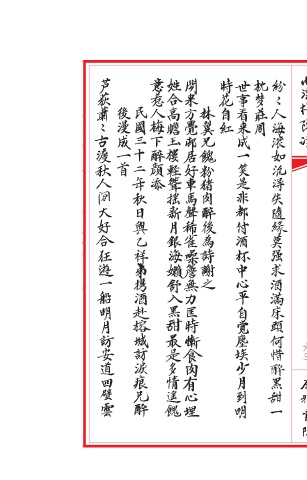 紛紛人海深如洗浮失隨緣莫强求酒滿床頭何惜醉黑甜一
枕夢莊周
世事看来成一笑是非都付酒杯中心平自覺塵埃少月到明
時花自紅
林翼兄餽粉猪肉醉後為詩謝之
閒来方覺郎居好車馬聲稀雀噪簷無力匡時慚食肉有心埋
姓合高瞻玉樓輕聳摇新月銀海嬾舒入黑甜最是多情遥餽
意忘人梅下醉頤添
民國三十二年秋日與乙祥弟携酒赴榕城訪淚痕兄醉
後漫成一首
芦荻蕭〻古渡秋人间大好合狂遊一船明月訪安道四壁雲